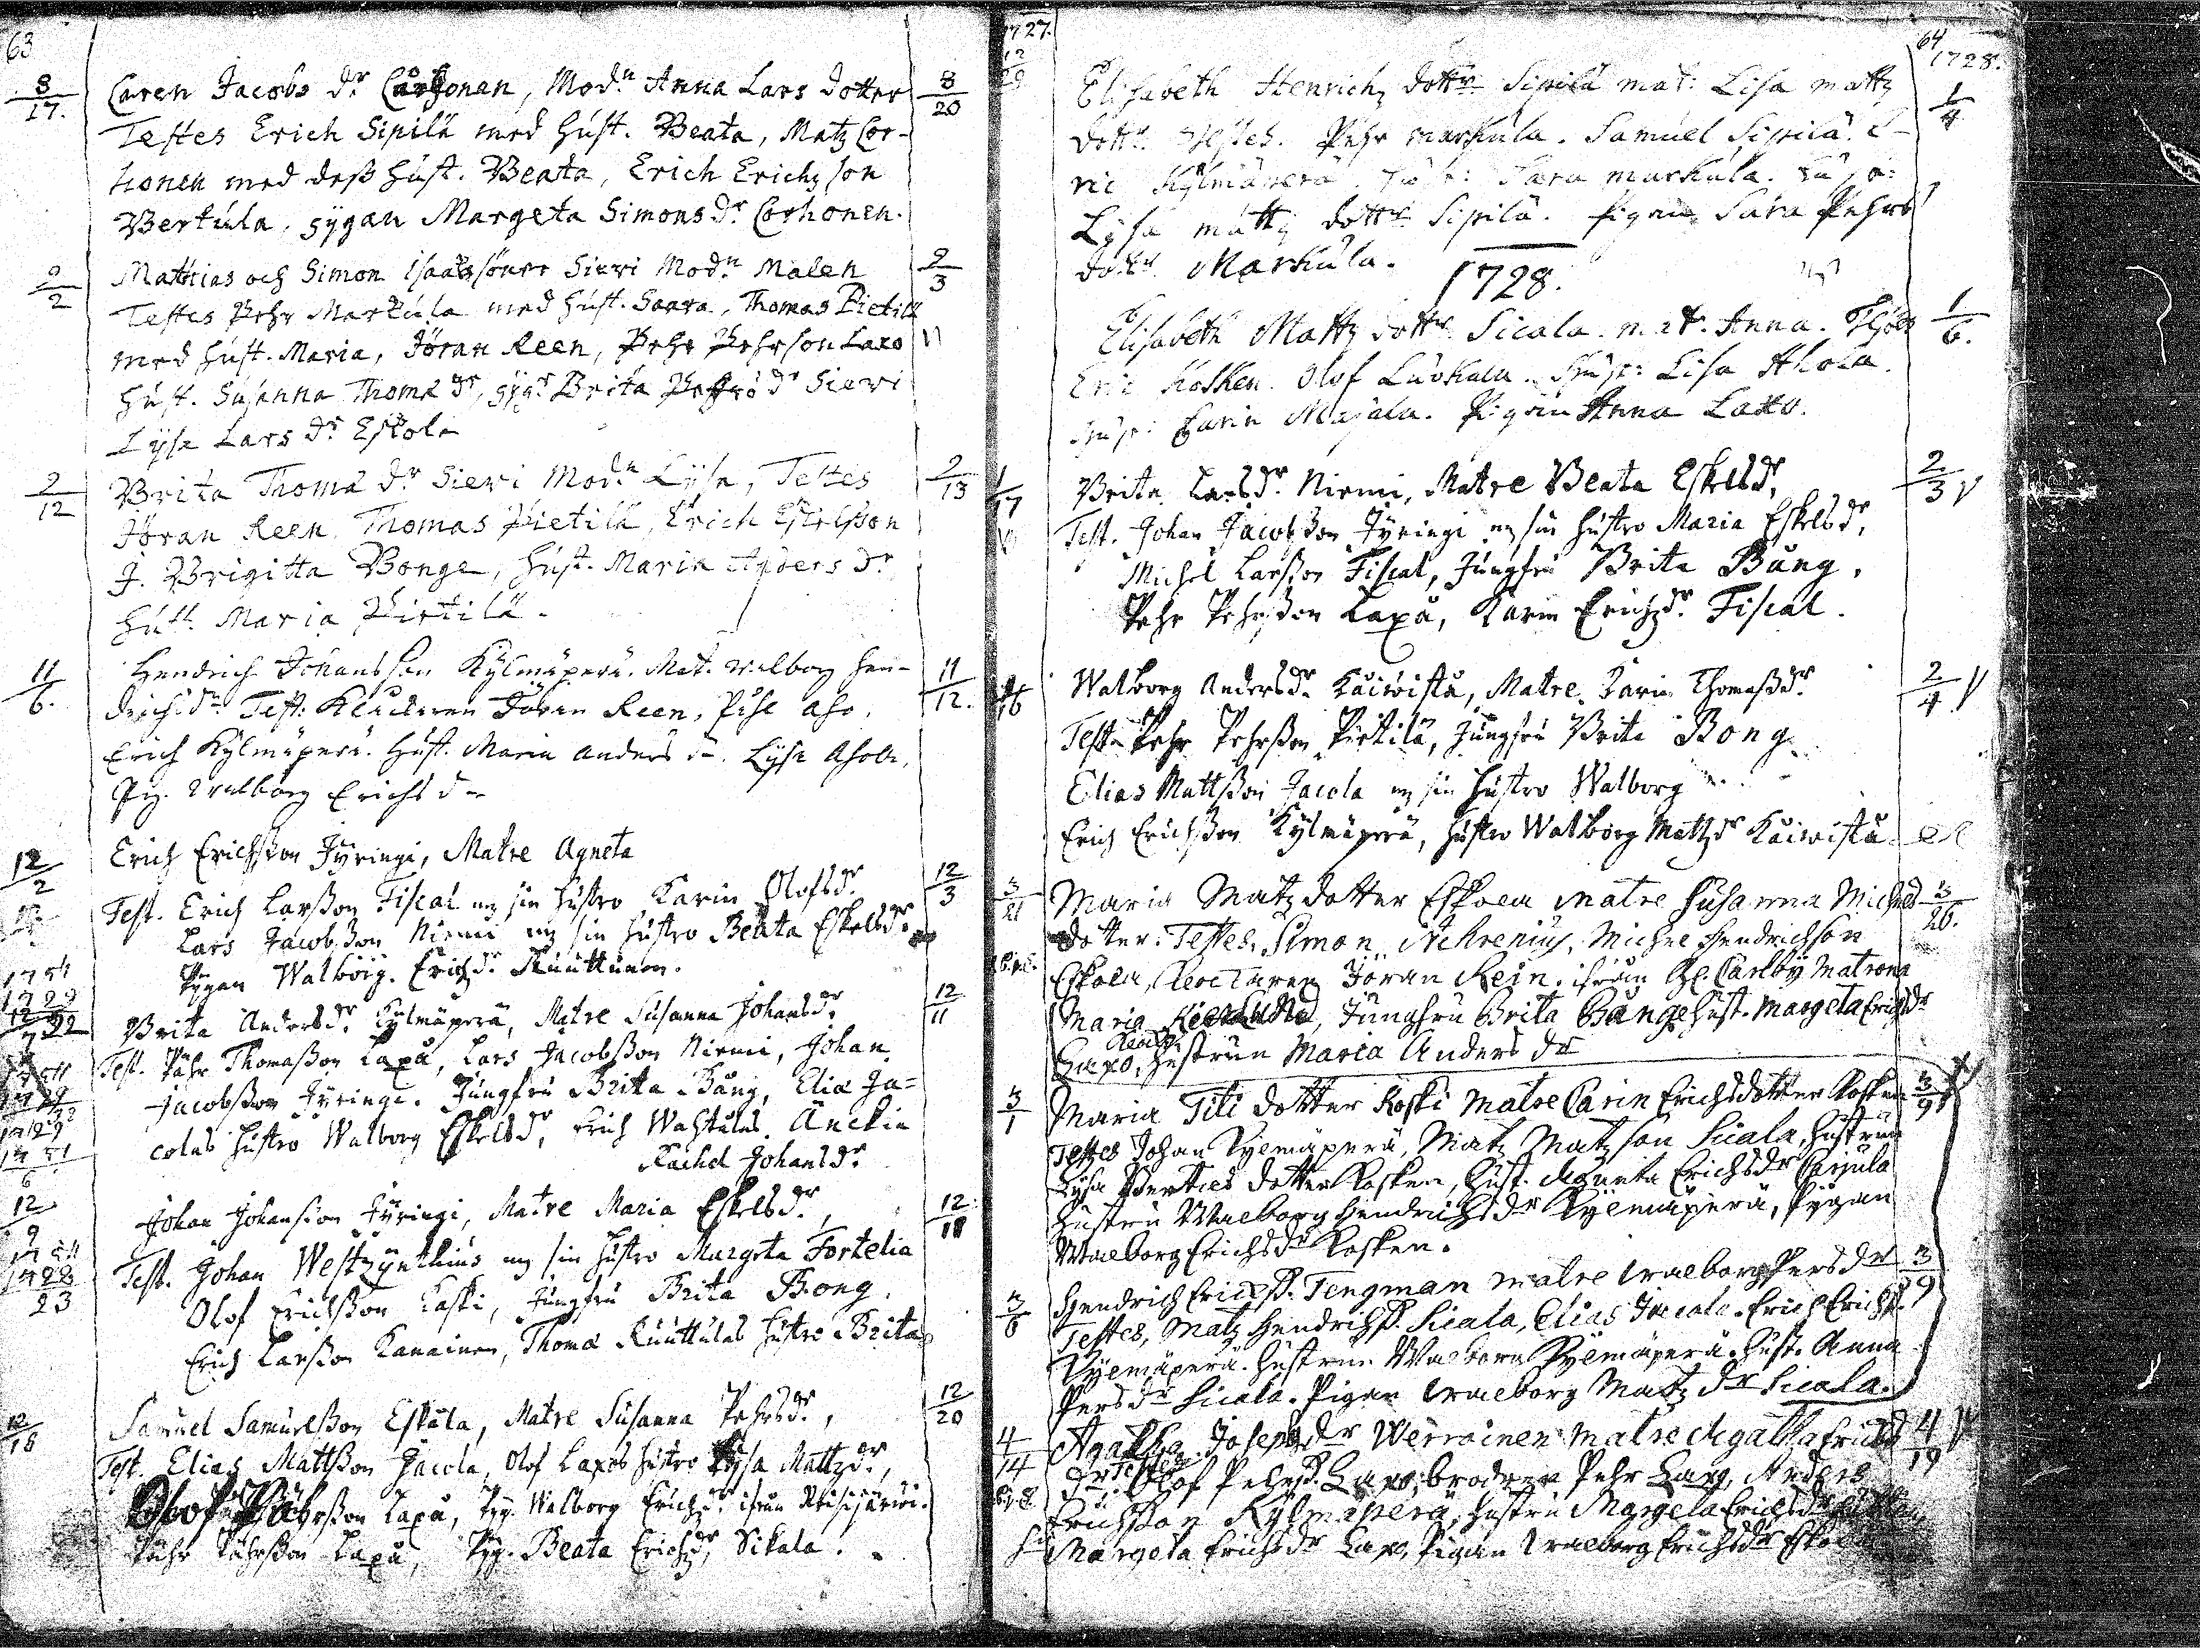 63
8/17. Caren Jacobs dr Corhonen, Modn Anna Lars dotter 8/20
Testes Erich Sipilä med hust. Beata, Matz Cor-
honen med dess hust. Beata, Erich Erichsson
Verkula, pygan Margeta Simons dr Corhonen.
2/2 Mathias och Simon Isaacssöner Sieri Modn Malen 2/3
Testes Pehr Markula med hust. Saara, Thomas Pietilä
med hust. Maria, Jöran Reen, Pehr Pehrson Laxo
hust. Susanna Thomæ dr, pyg. Brita Pehrs dr Sieri
Lysa Lars dr Eskola
2/12 Brita Thomæ dr Sieri Modn Lysa, Testes 2/13
Jöran Reen, Thomas Pietilä, Erich Eskelsson
J. Brigitta Bonge, hust. Maria Anders dr
hust. Maria Pietilä.
11/6. Hendrich Johansson Kylmäperä. Mat. Walborg Hen- 11/12.
drichs dr Test: Klockaren Jöran Reen, Pehr Aho,
Erich Kylmäperä. Hust. Maria Anders dr. Lysa Ahola,
Pig. Walborg Erichs dr
12/2 Erich Erichsson Jyringi, Matre Agneta
Test. Erich Larsson Fiscal m sin hustro Karin Olofsdr. 12/3
Lars Jacobsson Niemi m sin hustro Beata Eskelsdr
Pygan Walborg Erichsdr Ruuttunen.
Brita Andersdr. Kylmäperä, Matre Susanna Johansdr 12/11
Test. Pähr Thomasson Laxå, Lars Jacobsson Niemi, Johan
Jacobsson Jyringi. Jungfru Brita Bång, Elia Ja=
colas hustro Walborg Eskelsdr, Erich Wahtulas Änckia
Rachel Johansdr
12/9 Johan Johansson Jyringi, Matre Maria Eskelsdr, 12/11
Test. Johan Westzynthius m sin hustro Margeta Fortelia
Olof Erichsson Koski, Jungfru Brita Bong.
Erich Larsson Kanainen, Thomæ Ruuttulas hustro Brita
12/18 Samuel Samuelsson Eskola, Matre Susanna Pehrsdr, 12/20
Test. Elias Mattsson Jacola, Olof Laxos hustro Lysa Mattzdr,
Pährsson Laxå, Pyg. Walborg Erichzdr ifrån Reisijärwi.
Pähr Pährsson Laxå, Pyg. Beata Erichzdr Sikala.
1727.
64
1728.
12/29 Elisabeth Henrichz dottr Sipilä mat: Lisa mattz 1/4
dottr Testes. Pehr markula. Samuel Sipilä. E-
ric Kylmäperä. Hust: Sara markula.
Lysa mattz dottr Sipilä. Pigan Sara Pehrs
dottr Markula.
1728.
Elisabeth Mattz dottr Sicala. mat. Anna. 1/6.
Eric Kosken. Olof Luokala. Hust: Lisa Ahola.
Hust: Carin Majala. Pigan Anna Laxo.
1/17 Brita Larsdr. Niemi, Matre Beata Eskelsdr, 2/3 V
Test. Johan Jacobsson Jyringi m sin hustro Maria Eskelsdr,
Michel Larsson Fiscal, Jungfru Brita Bång,
Pehr Pehrsson Laxå, Karin Erichzdr. Fiscal.
Walborg Andersdr. Kaiwista, Matre Karin Thomassdr. 2/4 V
Test. Pehr Pehrsson Pietilä, Jungfru Brita Bong
Elias Mattsson Jacola m sin hustro Walborg
Erich Erichsson Kylmäperä, hustro Walborg Mattzdr Kaiwista
3/21 Maria Matz dotter Eskola matre Susanna Michels 3/26.
dotter. Testes. Simon Achrenius, Michel Hendrichson
Eskola, Clockaren Jöran Rein, ifrån G. Carleby Matrona
Maria, Jungfru Brita Bånge Hust. Margeta Erichsdr
Laxo, hustrun Maria Anders dr
3/1 Maria Titi dotter Koski matre Carin Erichsdotter Kosken 3/9
Testes Johan Kylmäperä, Matz Matzson Sicala, hustrun
Lysa Berties dotter Kosken, Hust. Agneta Erichsdr Carjula
Hustru Walborg Hendrichsdr Kylmäperä, Pygan
Walborg Erichsdr Kosken.
3/8 Hendrich Erichss. Tengman matre Walborg Persdr 3/9
Testes, Matz Hendrichss. Sicala, Elias Jacola. Erich Erichss.
Kylmäperä. Hustrun Walborg Kylmäperä. Hust. Anna
Persdr Sicala. Pigan Walborg Matz dr Sicala.
4/14 Agatha Josephsdr Werroinen matre Agatha Erichs 4/19 V
dr Testes Olof Pehrss. Laxo, brodren Pehr Laxo, Anders
Erichsson Kylmäperä, hustru Margeta Erichsdr
Margeta Erichsdr Laxo, Pigan Walborg Erichsdr Eskola